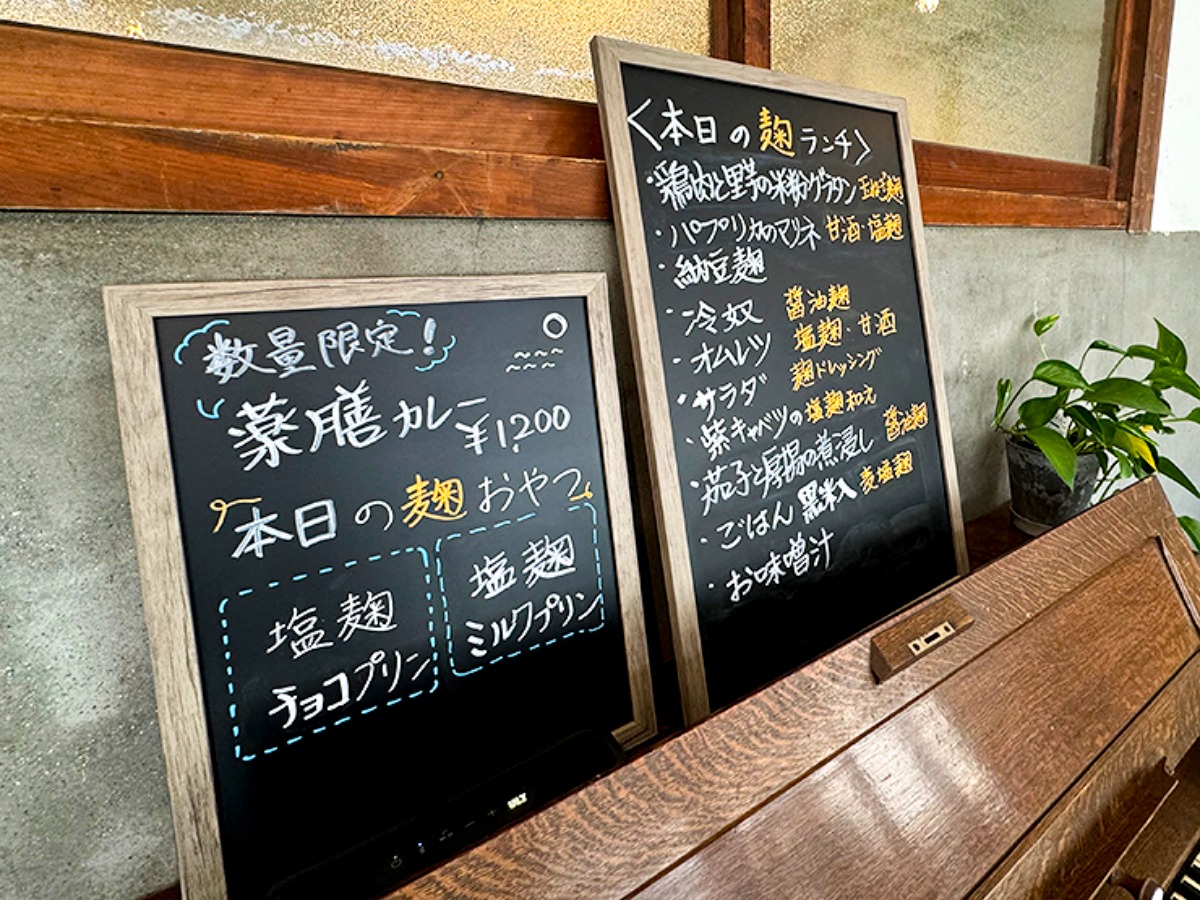 数量限定!
薬膳カレー
¥1200
本日の麹おやつ
塩麹
チョコプリン
塩麹
ミルクプリン
〈本日の麹ランチ〉
・鶏肉と里芋の米粉グラタン 玉ねぎ麹
・パプリカのマリネ 甘酒・塩麹
・納豆麹
・冷奴 醤油麹
・オムレツ 塩麹・甘酒
・サラダ 麹ドレッシング
・紫キャベツの塩麹和え
・茄子と厚揚の煮浸し 醤油麹
・ごはん 黒米入 麦塩麹
・お味噌汁
ULT